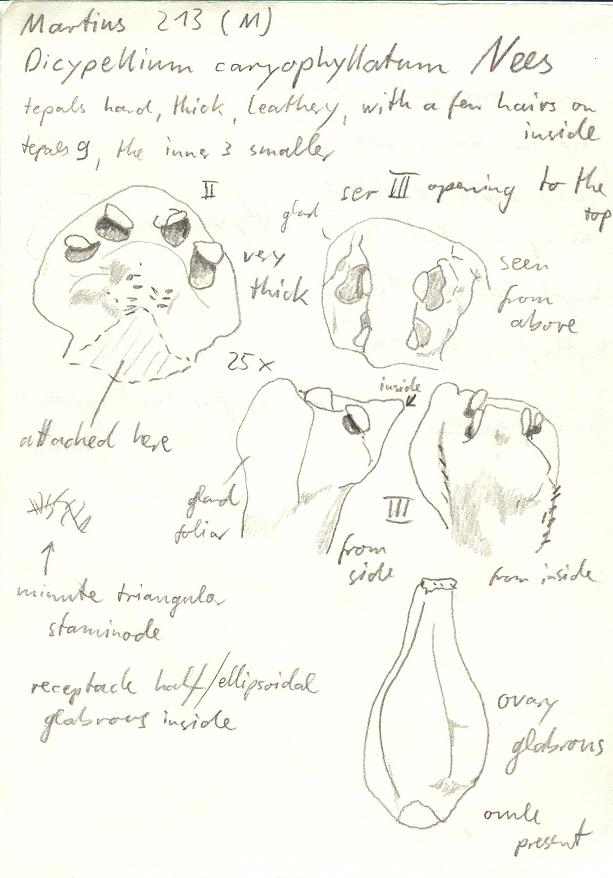 Martius 213 (M)
Dicypellium caryophyllatum Nees
tepals hard, thick, leathery, with a few hairs on
inside
tepals 9, the inner 3 smaller
II
ser III opening to the
top
gland
very
thick
seen
from
above
25x
inside
attached here
gland
foliar
III
from
side
from inside
minute triangular
staminode
receptacle half/ellipsoidal
glabrous inside
ovary
glabrous
ovule
present